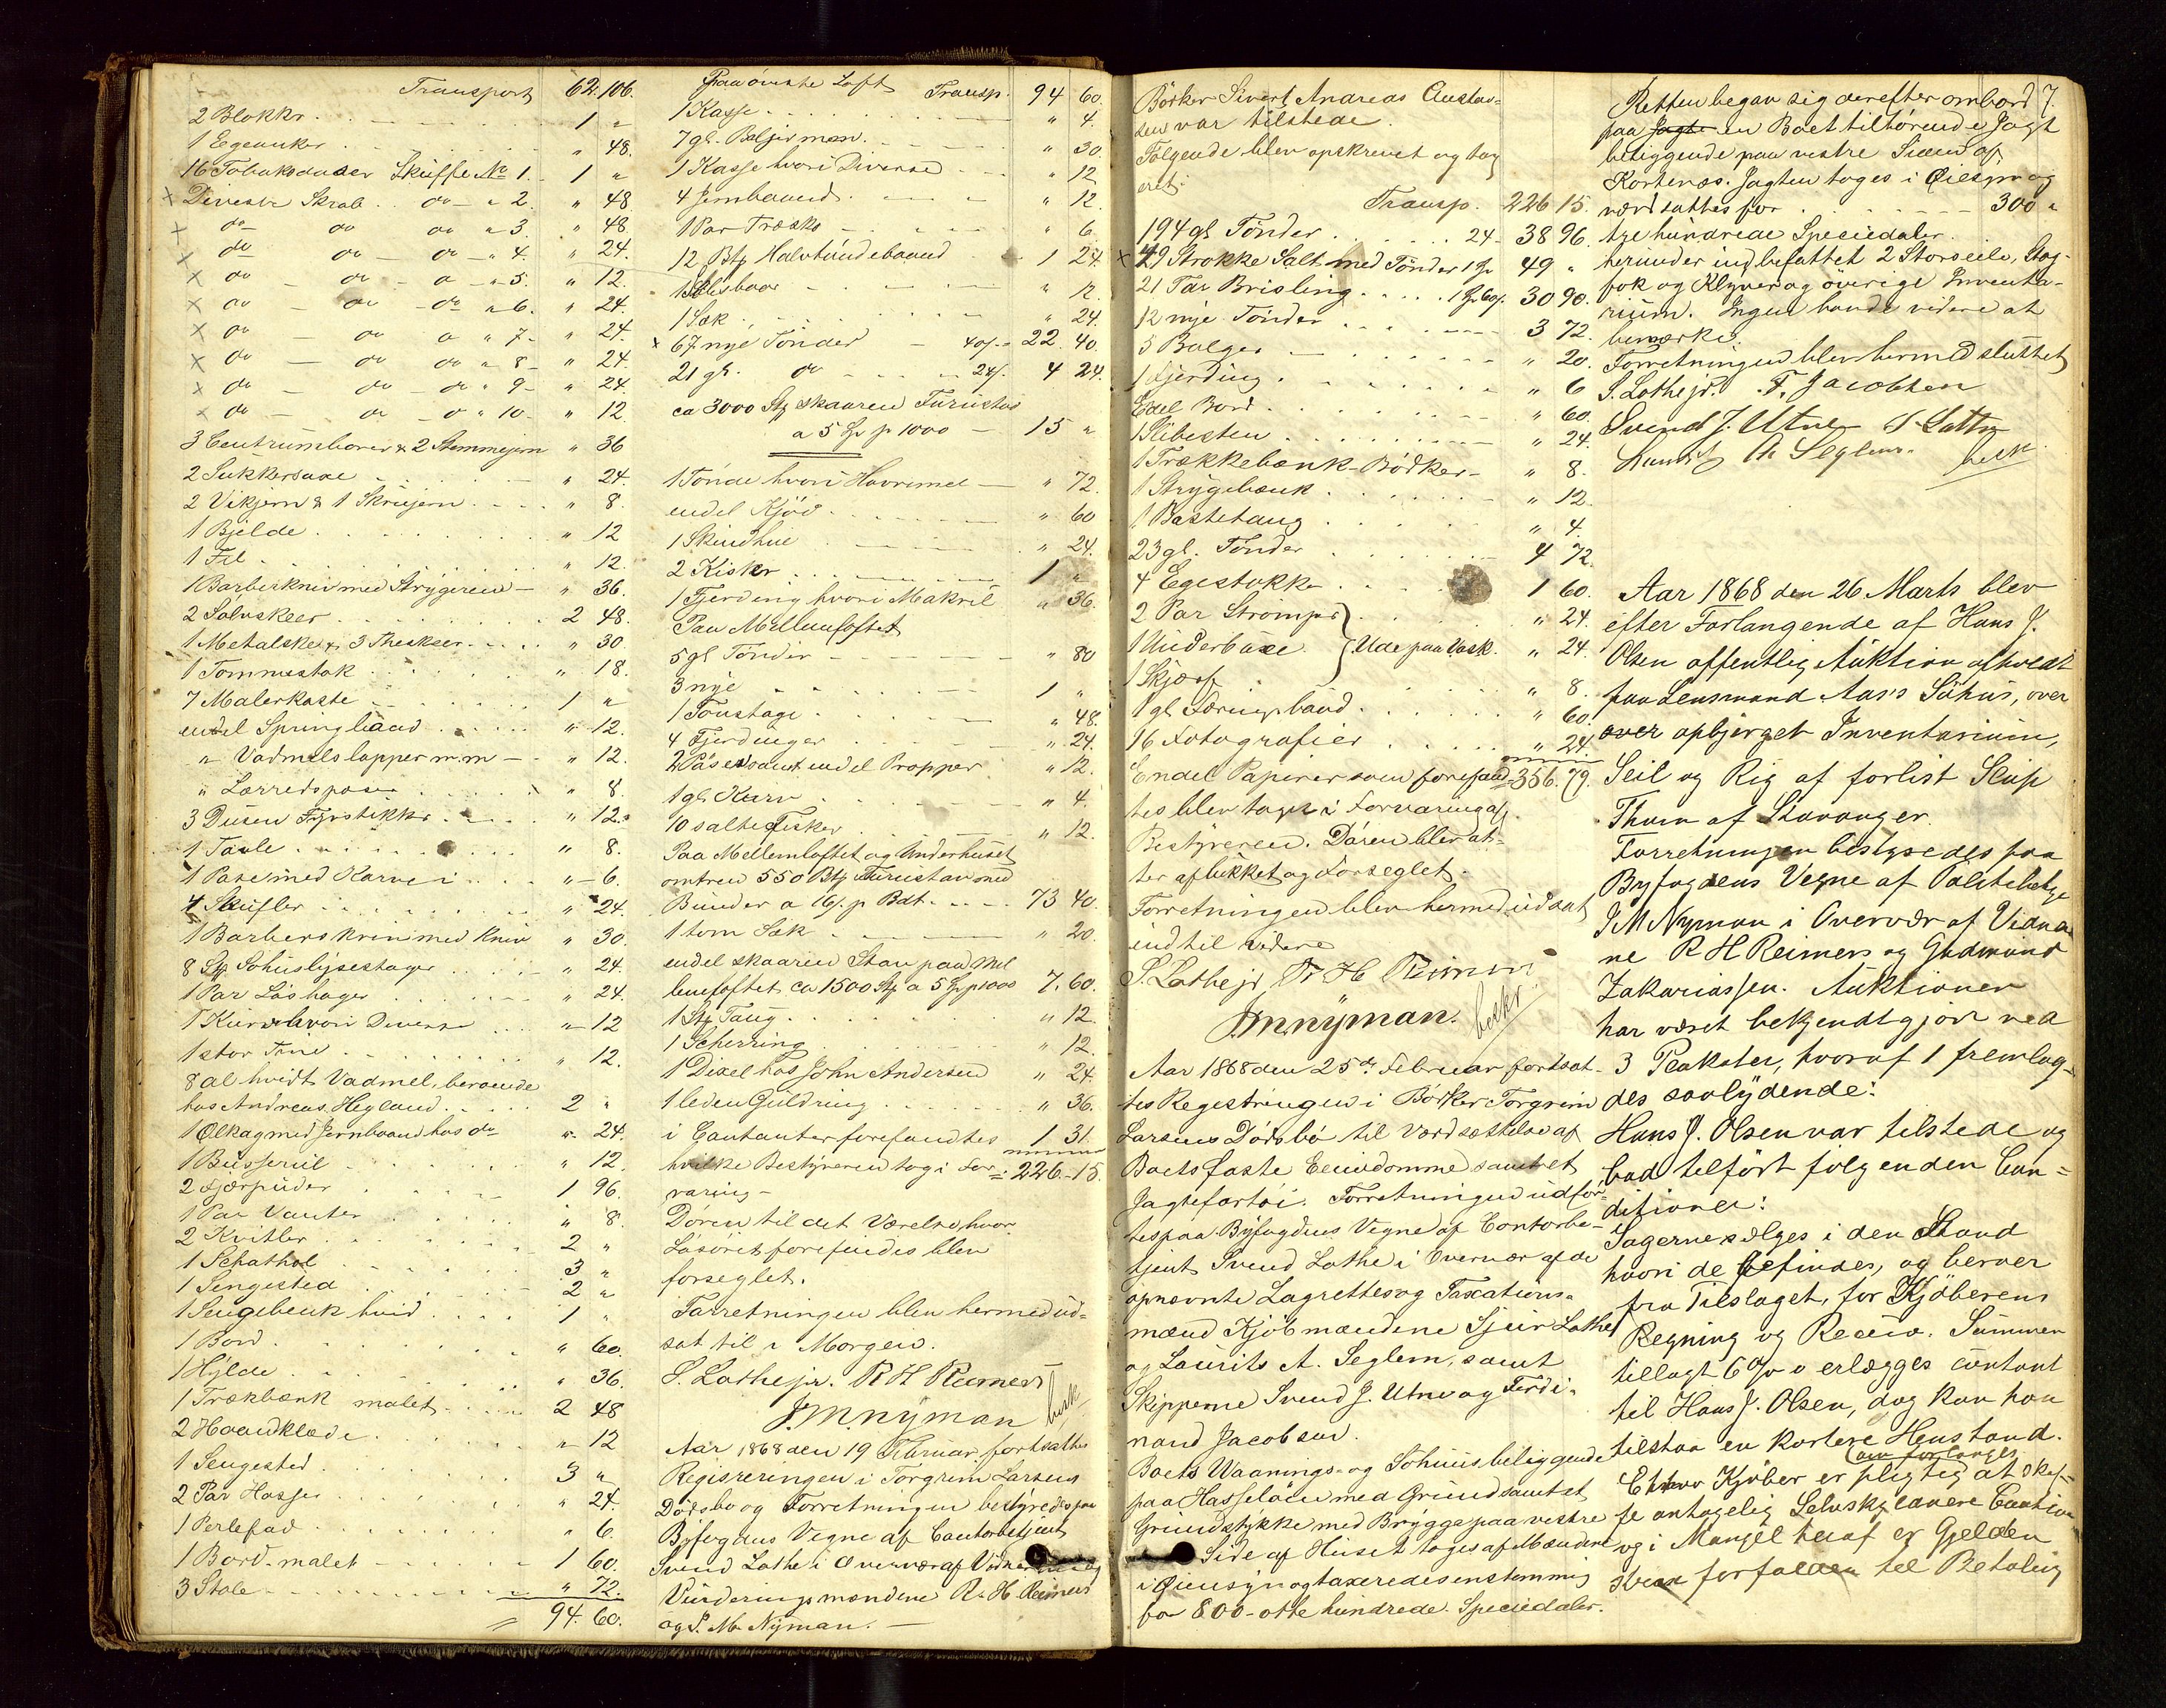 Transport 62.106.
2 Blokke 1 "
1 Egeanker " 48.
16 Tobaksdaaser Skuffe No 1. 1 "
x Diverse Skrab do " 2. " 48
x do do do " 3. " 48.
x do do do " 4. " 24.
x do do " 5. " 12.
x do do do " 6. " 24.
x do do " 7 " 24.
x do do do " 8 " 24
x do do do " 9 " 24.
x do do " 10 " 12
3 Centrumborer & 2 Stemmejern " 36
2 Sukkersaxe " 24.
2 Vikjern & 1 Skrujern " 8.
1 Bjelde " 12
1 Fil " 12.
1 Barberkniv med Strygerem " 36.
2 Sølvskeer 2 48.
1 Metalskee & 3 Theskeer " 30
1 Tommestok " 18.
7 Malerkoste 1 "
endel Springbaand " 12.
" Vadmelslapper m.m " 12.
" Lærredspose " 8.
3 Dusin Fyrstikker " 12.
1 Tavle " 8.
1 Pose med Karve i " 6.
4 Skufler " 24.
1 Barberskrin med Kniv " 30.
8 Stg Söhuslysestager " 24.
1 Par Laashager " 24.
1 Kurv hvori Diverse " 12
1 stor Tine " 12.
8 al hvidt Vadmel, beroende
hos Andreas Hegland 2 "
1 Ølkag med Jernbaand hos do " 24.
1 Busserul " 12.
2 Fjærpuder 1 96.
1 Par Vanter " 8.
2 Kvitler 2 "
1 Schathol 3 "
1 Sengested 2 "
1 Sengebenk hvid 1 "
1 Bord " 60.
1 Hylde " 36.
1 Trækbænk malet 2 48
2 Haandklæde " 12
1 Sengested 3 "
2 Par Hosser " 24.
1 Perlefad " 6.
1 Bord malet 1 60.
3 Stole " 72.
94. 60.
Paa øverste Loft Transp. 94 60.
1 Kasse " 4.
7 gl. Baljer m.m. " 30
1 Kasse hvori Diverse " 12
4 Jernbaand " 12.
1 Par Træsko " 6
12 Btg Halvtøndebaand 1 24.
1 Slibsten " 12.
1 Sæk " 24.
x 67 nye Tønder 40/- 22. 40.
21 gl. do 24/. 4 24.
ca 3000 Stg skaaren Furustav
a 5 Sp p 1000 15 "
1 Tønde hvori Havremel " 72.
endel Kjød " 60
1 Skindhue " 24.
2 Kister 1 "
1 Fjerding hvori Makrel " 36.
Paa Mellemloftet
5 gl Tønder " 80
3 nye " 1 "
1 Tønstage " 48.
4 Fjerdinger " 24.
2 Poser samt endel Propper " 12.
1 gl. Kurv " 4.
10 salte Fisker " 12.
Paa Mellemloftet og Underhuset
omtren 550 Btg Furustav med
Bunder a 16/. p Bdt. 73 40.
1 tom Sæk " 20.
endel skaaren Stav paa Mel
lemloftet ca 1500 Stg a 5 Sp p 1000 7. 60.
1 Stg Taug " 12.
1 Scherring " 12.
1 Dixel hos John Andersen " 24
1 leden Guldring " 36.
i Contanter forefandtes 1 31.
hvilke Bestyreren tog i For- 226.15.
varing -
Døren til det Værelse, hvor
Løsøret forefindes blev
forseglet.
Forretningen blev hermed ud-
sat til i Morgen.
S. Lothe jr. R H Reimers
J.M. Nyman besk.
Aar 1868 den 19 Februar fortsattes
Registreringen i Torgrim Larsens
Dødsbo og Forretningen bestyredes paa
Byfogdens Vegne af Contorbetjent
Svend Lothe i Overvær af Vidnerne og
Vurderingsmændene R. H. Reimers
og J. M. Nyman. -
Bødker Sivert Andreas Gustav-
sen var tilstede.
Følgende blev opskrevet og tax
eret:
Transp. 226 15.
194 gl Tønder 24 38 96.
x 49 Strokke Salt med Tønder 1 Sp 49 "
21 Tdr Brisling 1 Sp 60/. 30 90.
12 nye Tønder 3 72.
5 Balger " 20.
1 Fjerding " 6
Endel Bord " 60.
1 Slibesten " 24.
1 Trækkebænk-Bødker- " 8.
1 Strygebænk " 12.
1 Bastetaug " 4.
23 gl. Tønder 4 72.
4 Egestokke 1 60.
2 Par Strømper " 24.
1 Underbuxe } Ude paa Vask. " 24.
1 Skjærf " 8.
1 gl Færingsbaad " 60.
16 Fotografier " 24.
Endel Papirer som forefand- 356. 79.
tes blev tagen i Forvaring af
Bestyreren. Døren blev at-
ter aflukket og Forseglet.
Forretningen blev hermed udsat
indtil videre
S. Lothe jr R H Reimers
J.M. Nyman. beskr.
Aar 1868 den 25de Februar fortsat-
tes Registringen i Bødker Torgrim
Larsens Dødsbo til Værdsættelse af
Boets faste Eiendomme samt et
Jagtefartøi. Forretningen udför-
tes paa Byfogdens Vegne af Contorbe-
tjent Svend Lothe i Overvær af de
opnævnte Lagrettes og Taxations-
mænd Kjöbmændene Sjur Lothe
og Laurits A. Seglem, samt
Skipperne Svend J. Utne og Ferdi-
nand Jacobsen.
Boets Vaanings- og Söhuus beliggende
paa Hasseløen med Grund samt et
Grundstykke med Brygge paa vestre
Side af Huset toges af Mændene
i Øiensyn og taxeredes enstemmig
for 800 - otte hundrede Speciedaler.
Retten begav sig derefter ombord 7.
paa Jagte en Boet tilhørende Jagt
beliggende paa vestre Siden af
Kortenæs. Jagten toges i Øiesyn og
værdsattes for 300 "
tre hundrede Speciedaler.
herunder indbefattet 2 Storseile, Stag-
fok og Klyver og øvrige Inventa-
rium. Ingen havde videre at
bemærke.
Forretningen blev hermed sluttet
S. Lothe jr. F. Jacobsen
Svend J. Utne S Lothe
Laurits A Seglem. besk
Aar 1868 den 26 Marts blev
efter Forlangende af Hans J.
Olsen offentlig Auktion afholdt
paa Lensmand Aas's Söhus, over
over opbjerget Inventarium,
Seil og Rig af forlist Slup
Thum af Stavanger.
Forretningen bestyredes paa
Byfogdens Vegne af Politibetje
J M Nyman i Overvær af Vidner
ne R H Reimers og Gudmund
Zakariassen. Auktionen
har været bekjendtgjort ved
3 Plakater, hvoraf 1 fremlag-
des saalydende:
Hans J. Olsen var tilstede og
bad tilført følgenden Con-
ditioner:
Sagerne sælges i den Stand
hvori de befindes, og beroer
fra Tilslaget, for Kjöberens
Regning og Reciso. Summen
tillagt 6 % erlægges contant
til Hans J. Olsen, dog kan han
tilstaa en kortere Henstand.
Enhver Kjøber er pligtig at skaf- (om forlanges
fe antagelig Selvskyldnere Caution
og i Mangel heraf er Gjelden
strax forfalden til Betaling